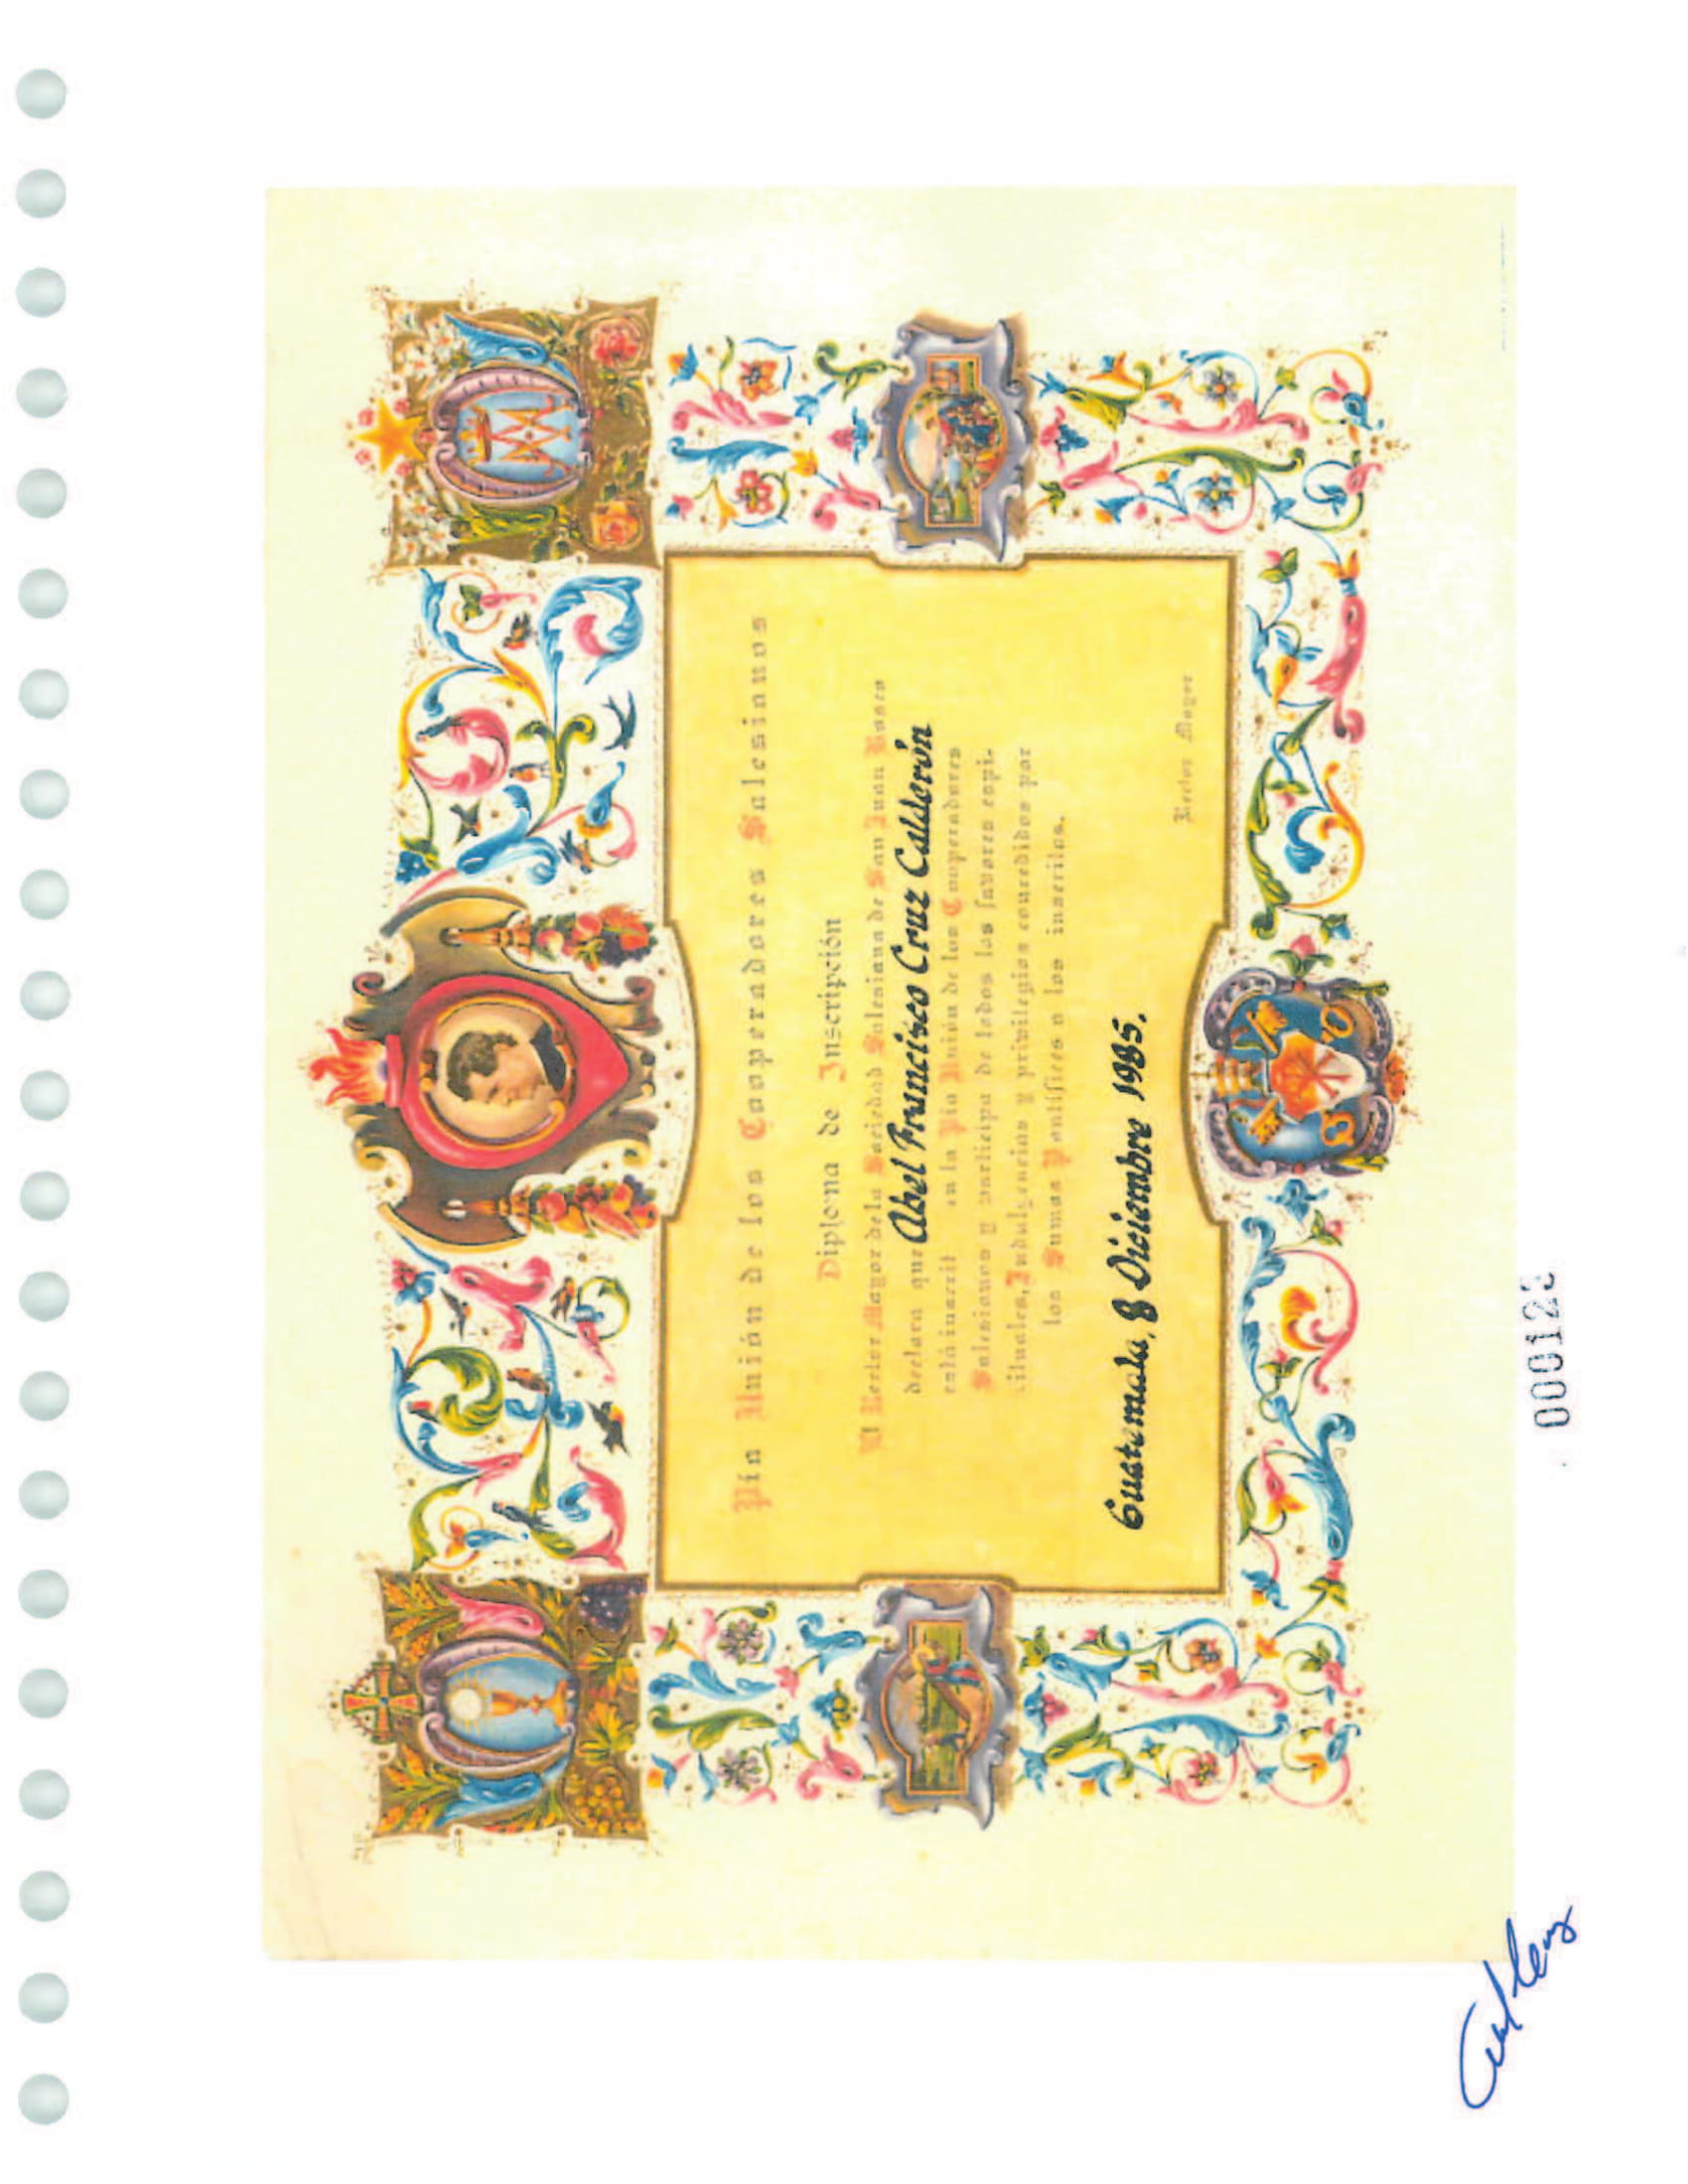 Pía Unión de los Cooperadores Salesianos
Diploma de Inscripción
El Rector Mayor de la Sociedad Salesiana de San Juan Bosco
declara que Abel Francisco Cruz Calderón
está inscrit en la Pía Unión de los Cooperadores
Salesianos y participa de todos los favores espi-
rituales, Indulgencias y privilegios concedidos por
los Sumos Pontífices a los inscritos.
Guatemala, 8 Diciembre 1985.
Rector Mayor
000123